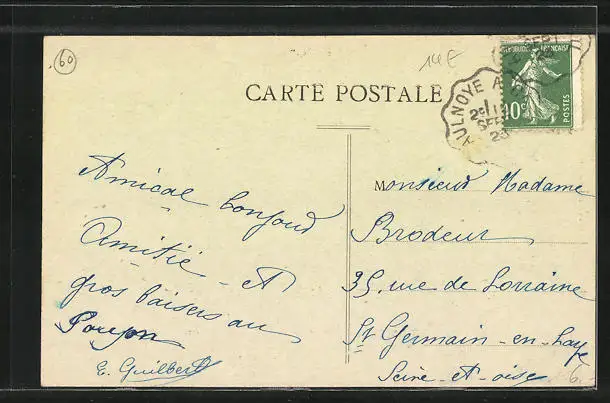 60
14E
CARTE POSTALE
REPUBLIQUE FRANÇAISE
10c
POSTES
AULNOYE A
2e
SEPT
23
Amical bonjour
Amitié et
gros baisers au
E. Guilbert
Monsieur Madame
Brodeur
35, rue de Lorraine
St Germain-en-Laye
Seine-et-oise
6